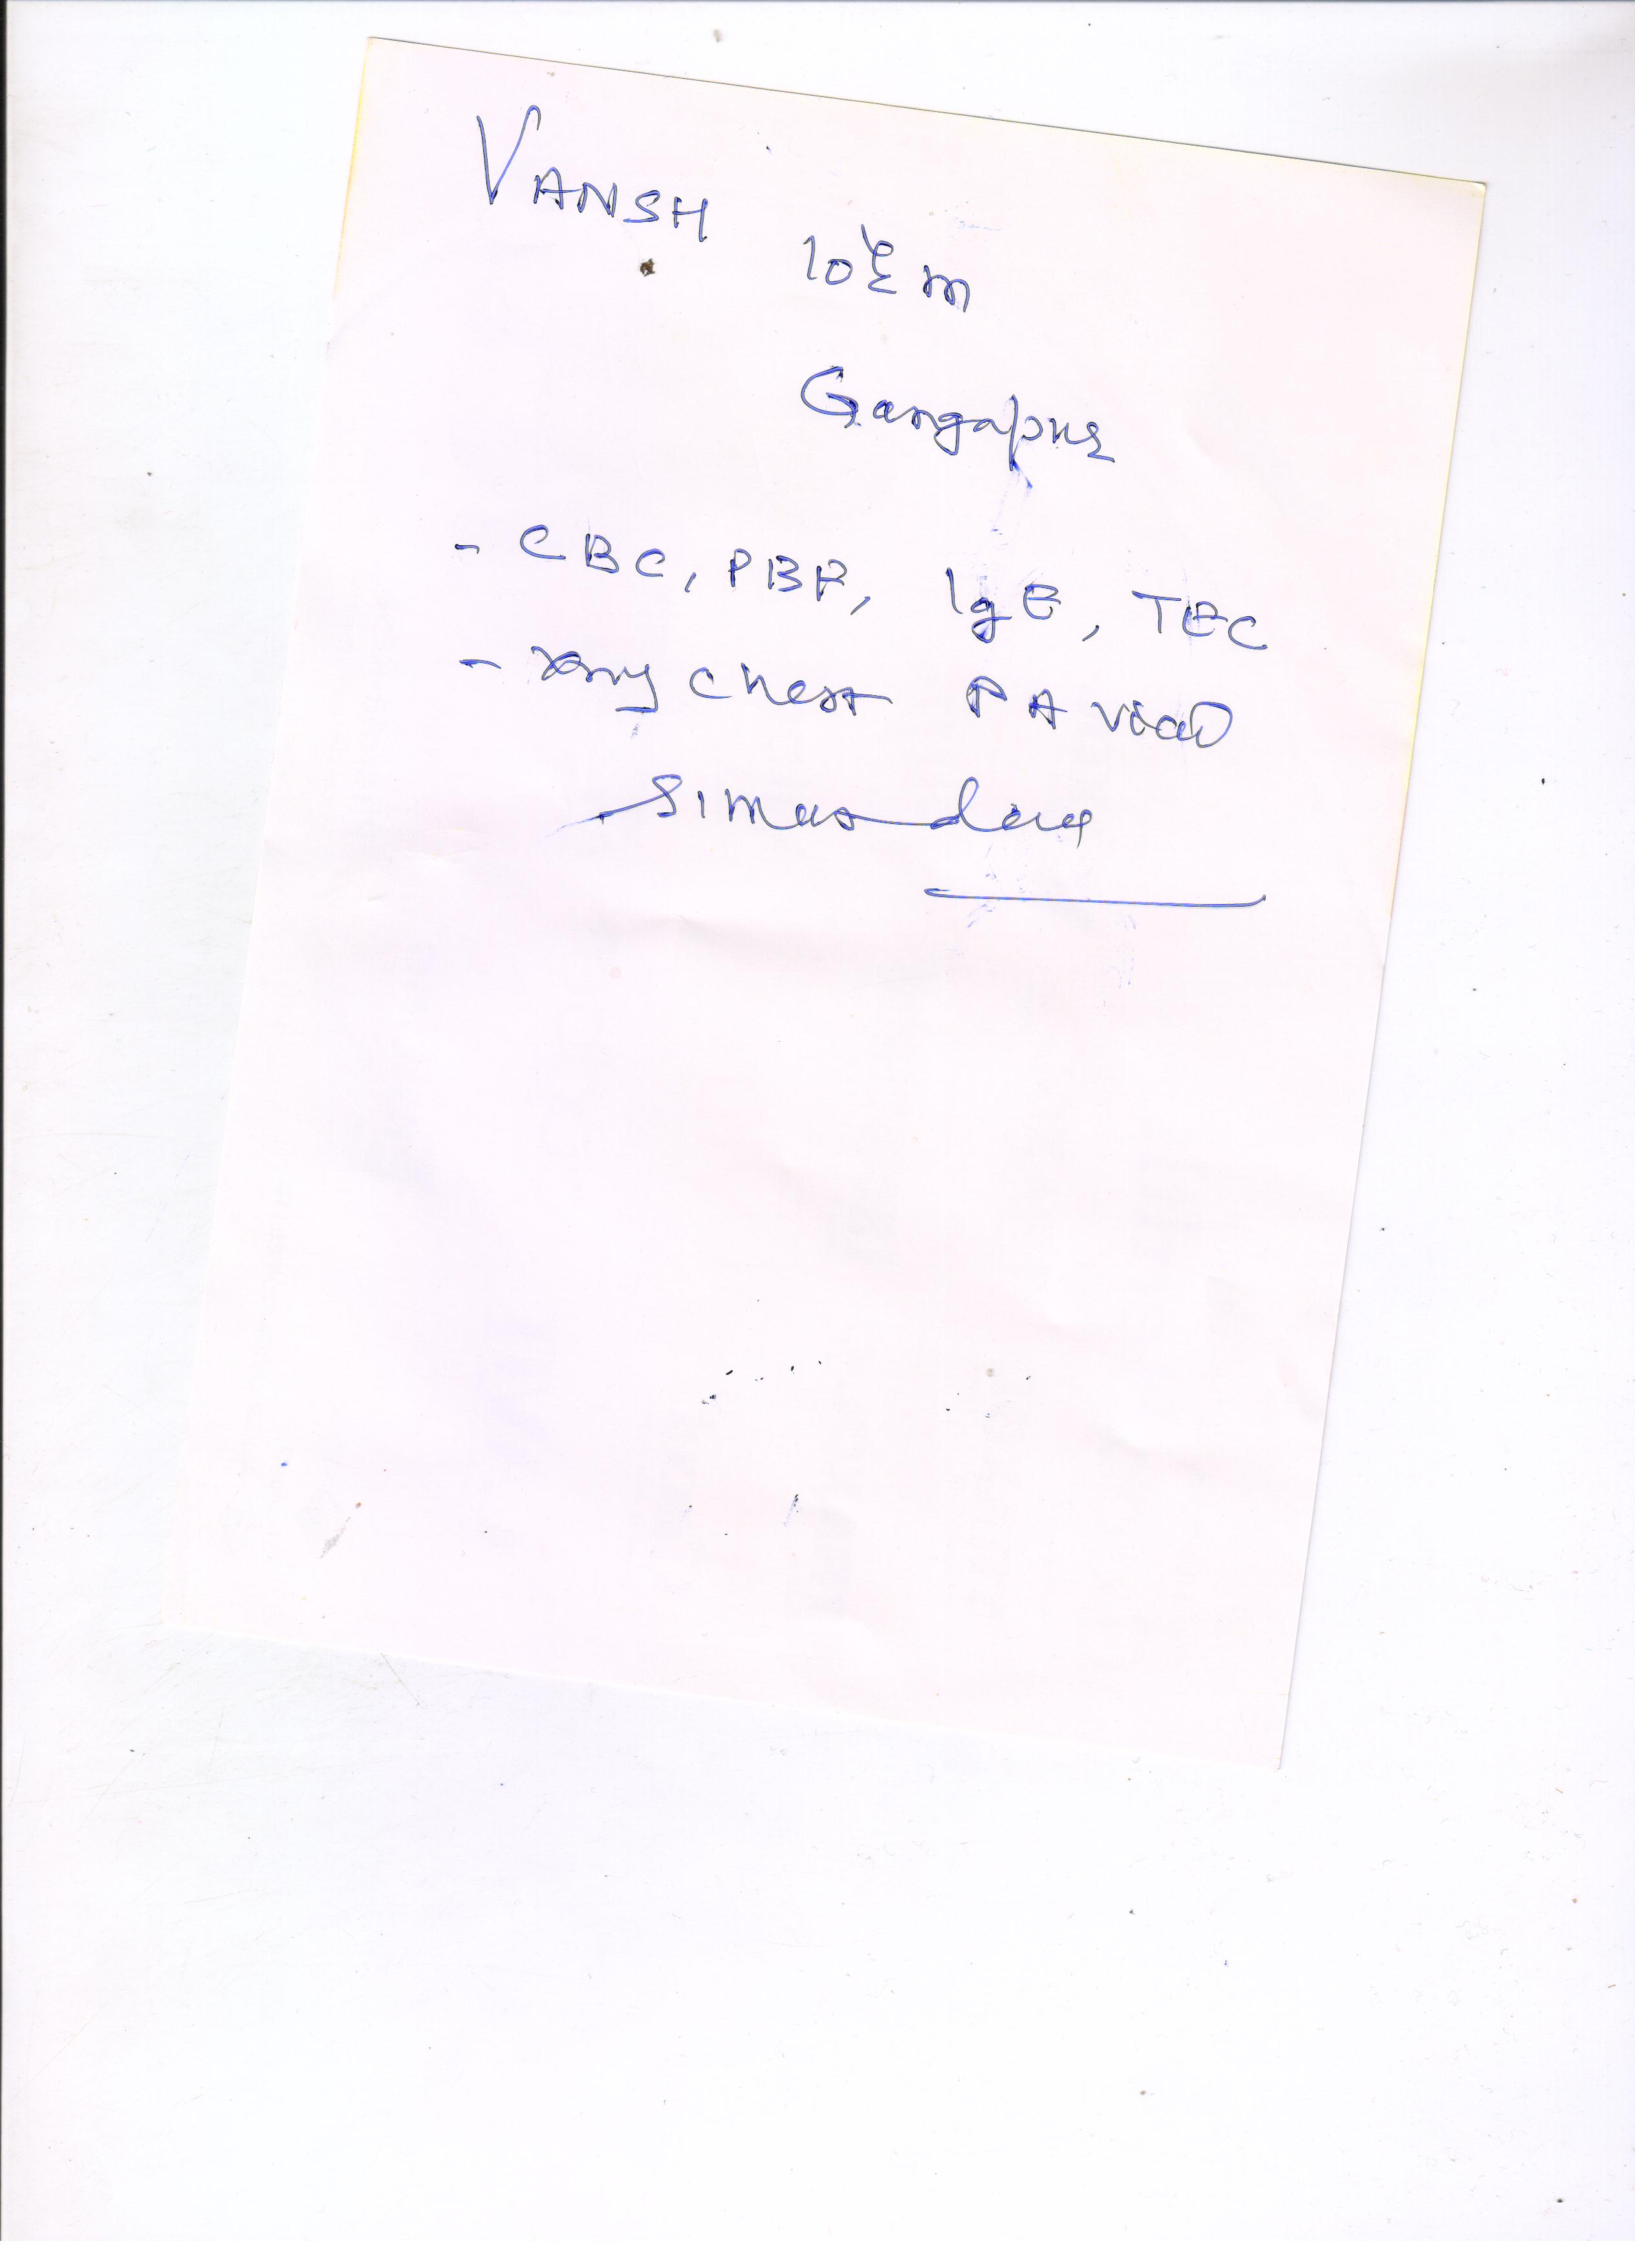 VANSH
10 Y M
Gangapur
- CBC, PBF, IgE, TEC
- Xray Chest PA view